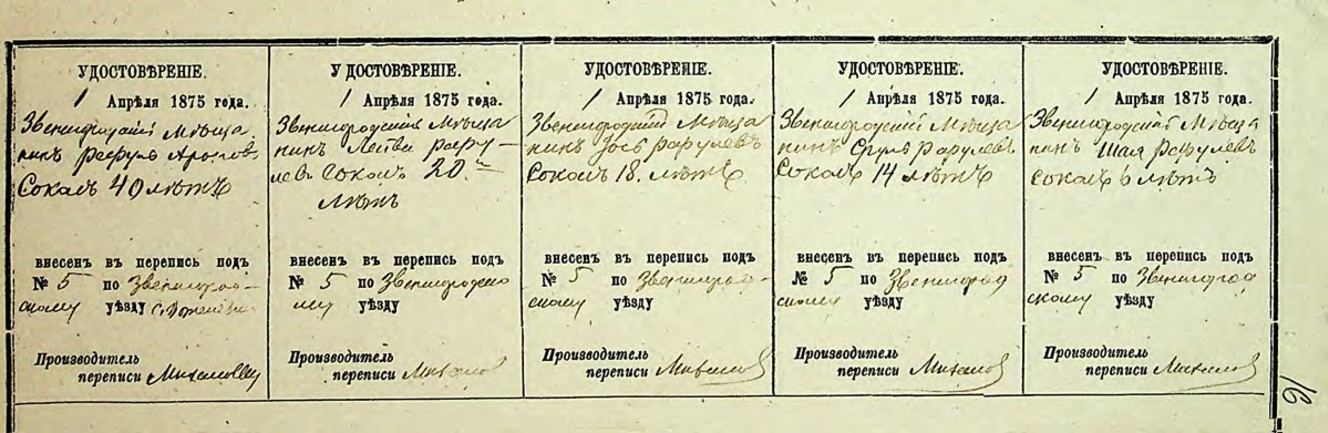 УДОСТОВѢРЕНІЕ.
1 Апрѣля 1875 года.
Звенигородскій Мѣща
нинъ Рефулъ Ароновъ
Соколъ 40 лѣтъ
внесенъ въ перепись подъ
№ 5 по Звенигород-
скому уѣзду
Производитель
переписи
УДОСТОВѢРЕНІЕ.
1 Апрѣля 1875 года.
Звенигородскій Мѣща
нинъ Лейба Рафу-
левъ Соколъ 20
лѣтъ
внесенъ въ перепись подъ
№ 5 по Звенигородско
му уѣзду
Производитель
переписи
УДОСТОВѢРЕНІЕ.
1 Апрѣля 1875 года.
Звенигородскій Мѣща
нинъ Іось Рафулевъ
Соколъ 18 лѣтъ
внесенъ въ перепись подъ
№ 5 по Звенигород-
скому уѣзду
Производитель
переписи
УДОСТОВѢРЕНІЕ.
1 Апрѣля 1875 года.
Звенигородскій Мѣща
нинъ Сруль Рафулевъ
Соколъ 14 лѣтъ
внесенъ въ перепись подъ
№ 5 по Звенигород
скому уѣзду
Производитель
переписи
УДОСТОВѢРЕНІЕ.
1 Апрѣля 1875 года.
Звенигородскій Мѣща
нинъ Шая Рефулевъ
Соколъ 6 лѣтъ
внесенъ въ перепись подъ
№ 5 по Звенигород
скому уѣзду
Производитель
переписи